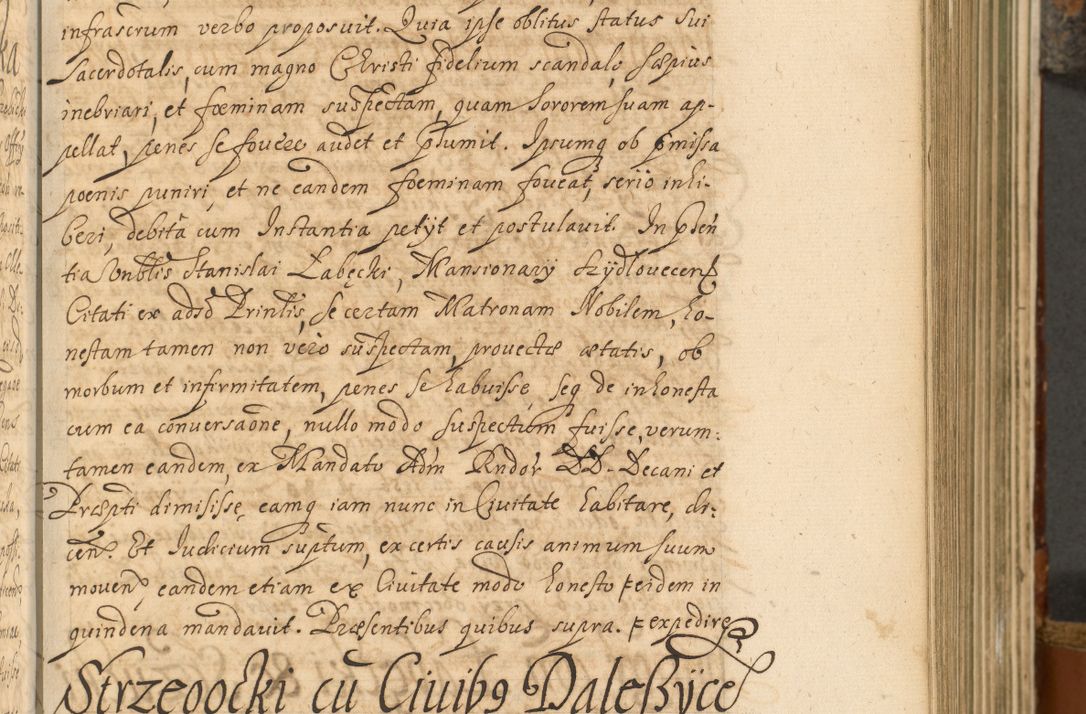 infrascrum verbo proposuit. Quia ipse oblitus status sui
Sacerdotalis, cum magno Christi fidelium scandalo, sæpius
inebriari, et fœminam suspectam, quam sororem suam ap-
pellat, penes se fovere audet et pſumit. Ipsumq ob pmissa
poenis puniri, et ne eandem foeminam foveat, serio inhi-
beri, debitâ cum Instantia petyt et postulavit. In pſen
tia Vnblis Stanislai Łabęcki, Mansionarÿ Szydlovecen
Citati ex adsd Prinlis, se certam Matronam Nobilem, ho-
nestam tamen non vero suspectam, provectæ ætatis, ob
morbum et infirmitatem, penes se habuisse, seq de inhonesta
cum ea conversaõne, nullo modo suspectum fuisse, verum:
tamen eandem, ex Mandato Adm Rndor DD. Decani et
Præpti dimisisse, eamq iam nunc in Civitate habitare, di:
cen. Et Iudicium suptum, ex certis causis animum suum
moven eandem etiam ex Civitate modo honesto p eidem in
quindena mandavit. Præsentibus quibus supra. p expedire
Strzegocki cū Civib9 Daleszÿce